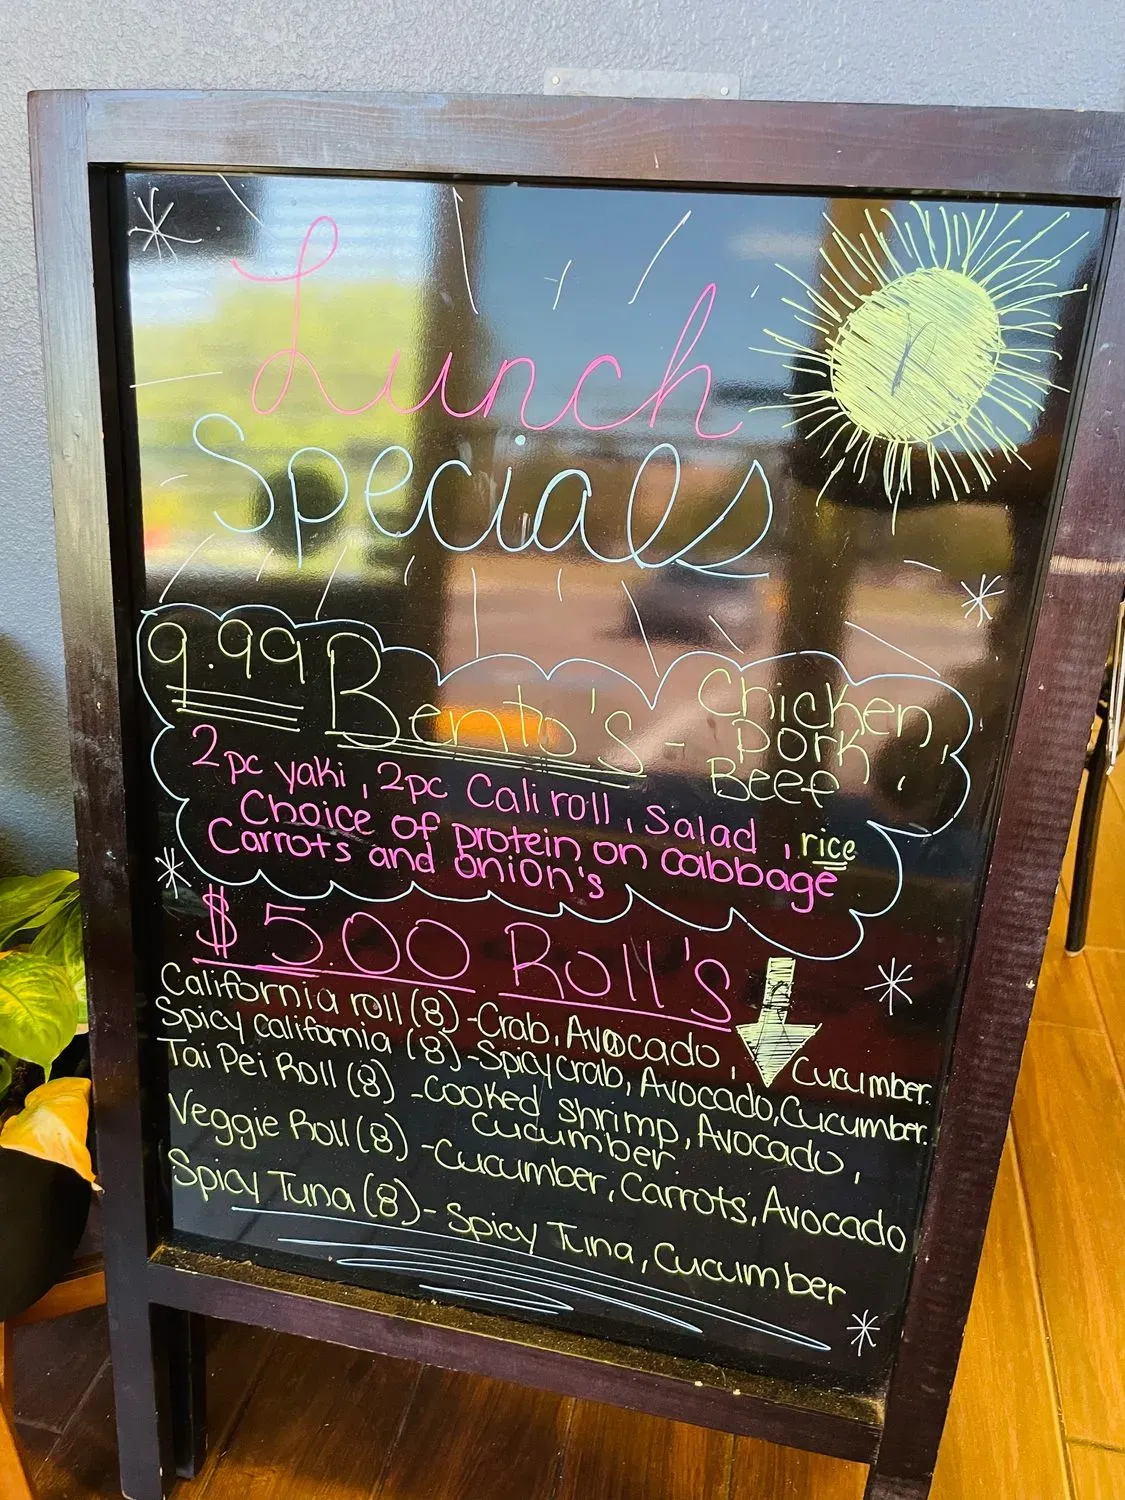 Lunch
Specials
9.99 Bento's - Chicken,
Pork,
Beef
2pc yaki, 2pc Cali roll, Salad, rice
Choice of protein on cabbage
Carrots and onion's
$5.00 Roll's
California roll (8) - Crab, Avocado, Cucumber.
Spicy California (8) - Spicy crab, Avocado, Cucumber.
Tai Pei Roll (8) - Cooked shrimp, Avocado,
Cucumber
Veggie Roll (8) - Cucumber, Carrots, Avocado
Spicy Tuna (8) - Spicy Tuna, Cucumber